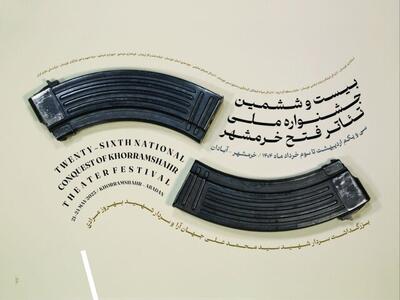 بیست و ششمین
جشنواره ملی
تئاتر فتح خرمشهر
سی و یکم اردیبهشت تا سوم خرداد ماه ۱۴۰۴ / خرمشهر . آبادان
TWENTY-SIXTH NATIONAL
CONQUEST OF KHORRAMSHAHR
THEATER FESTIVAL
21-24 MAY 2025 / KHORRAMSHAHR - ABADAN
بزرگداشت سردار شهید سید محمد علی جهان آرا و سردار شهید بهروز مرادی